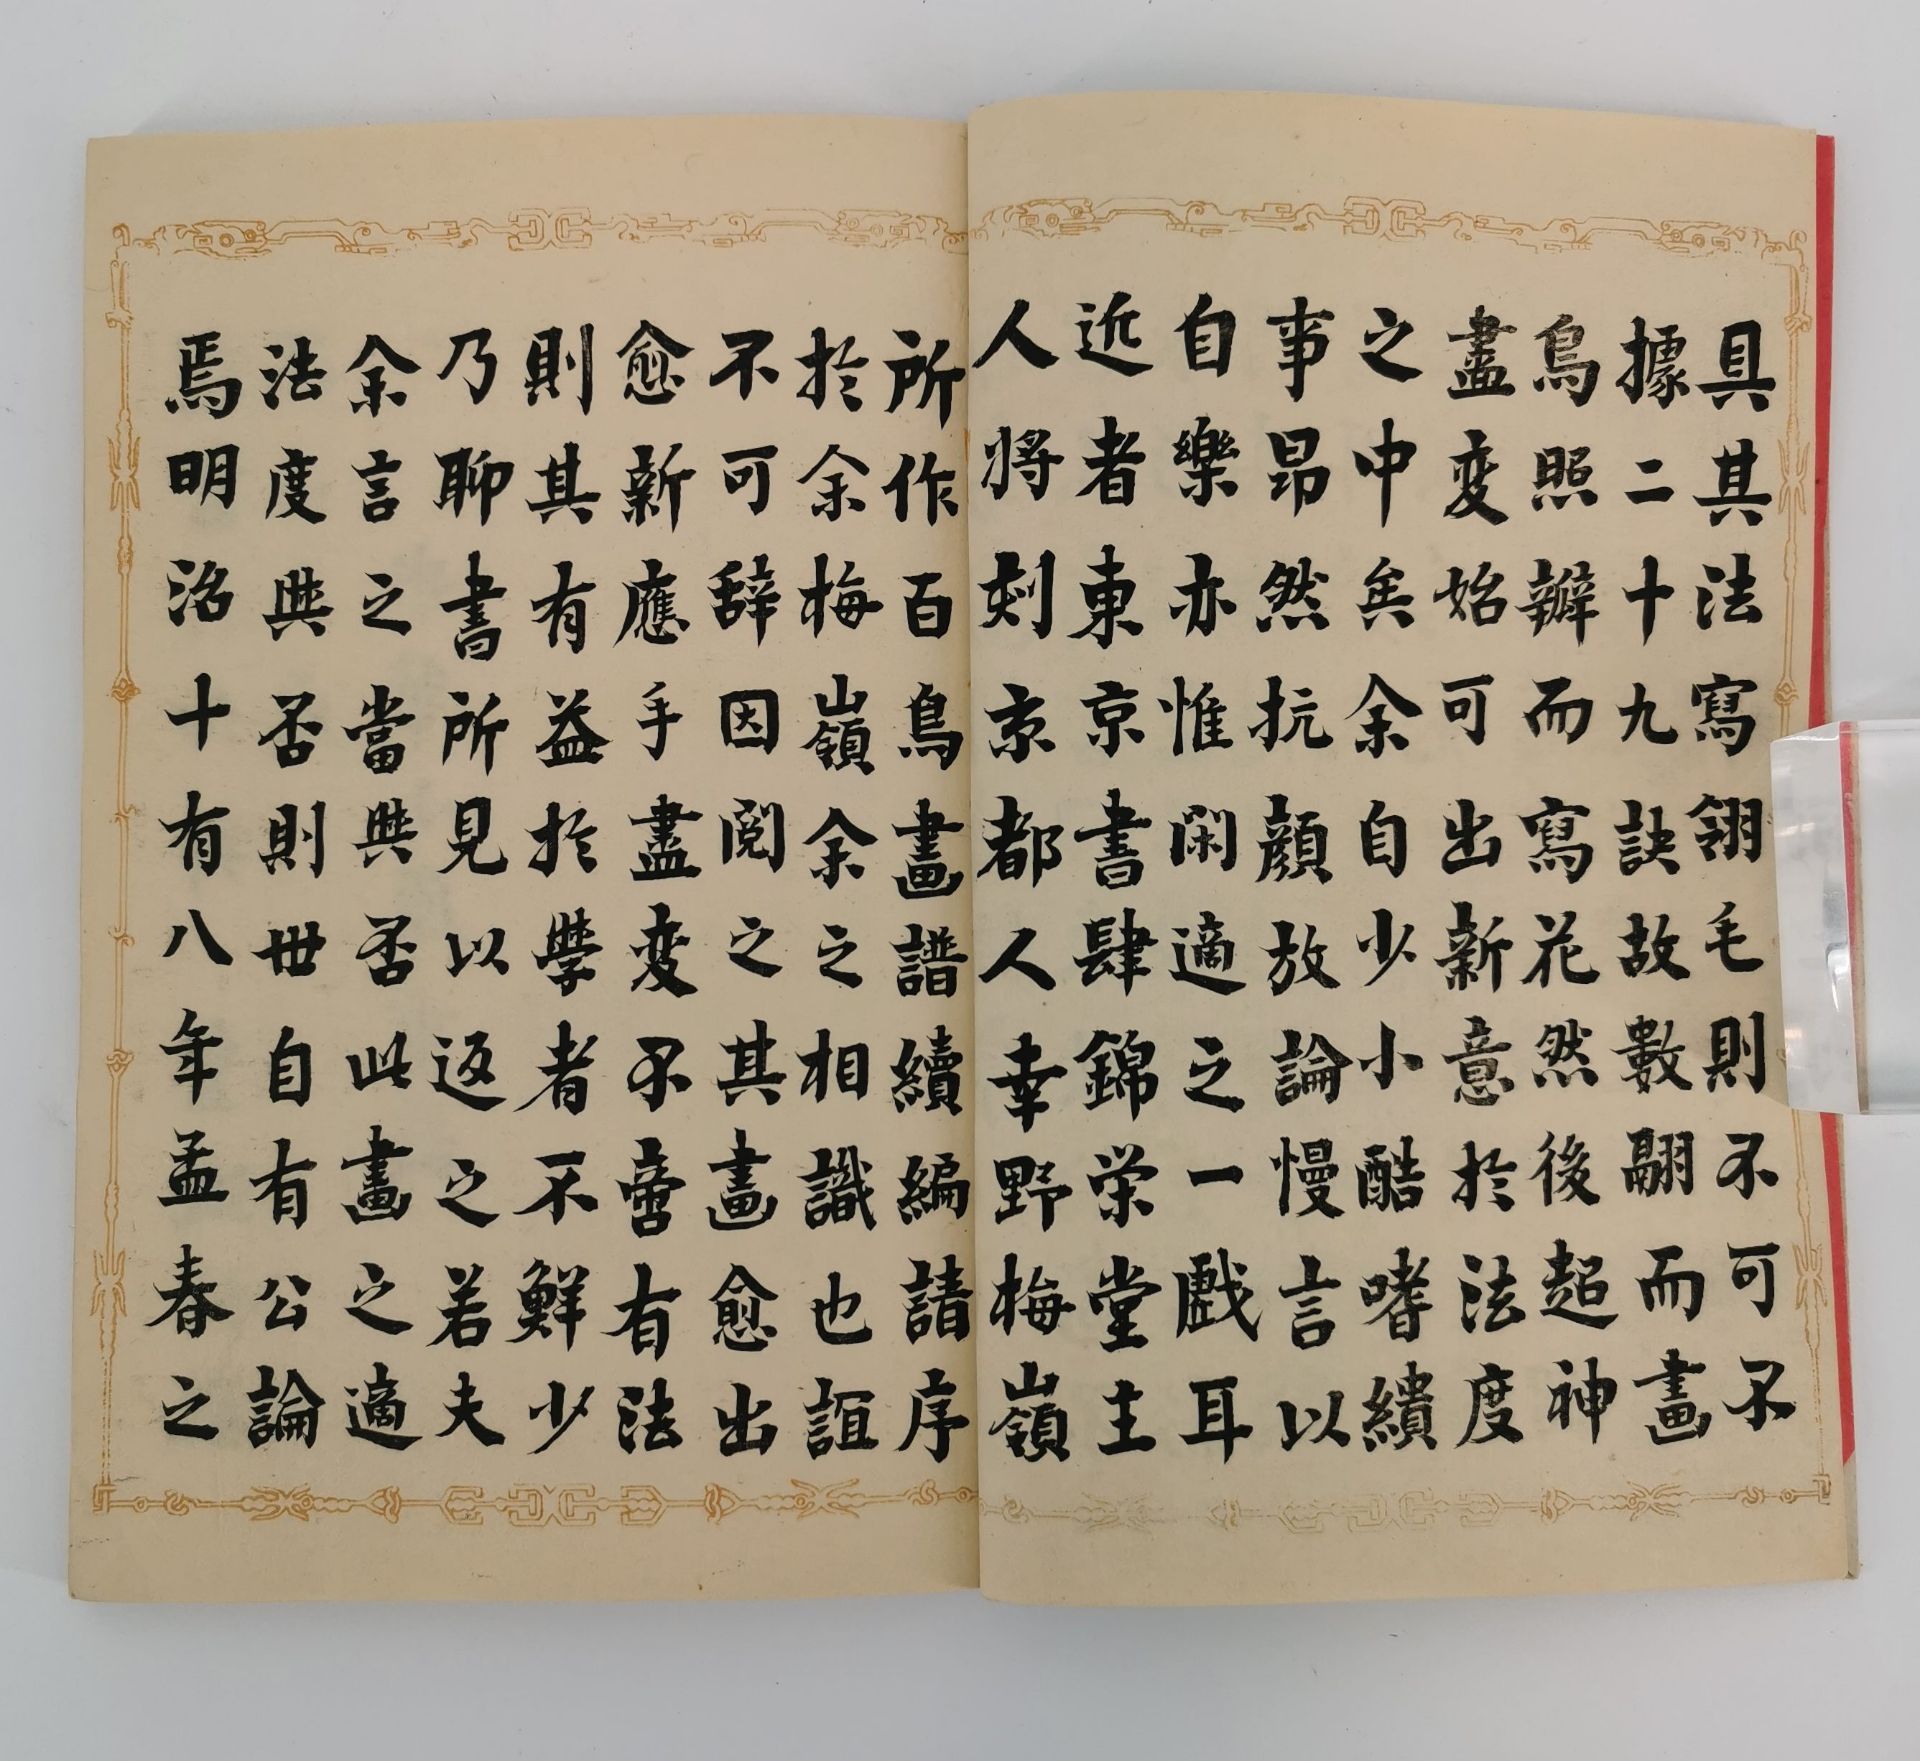 具其法寫翎毛則不可不
據二十九訣故數翮而畫
鳥照辦而寫花然後超神
盡変始可出新意於法度
之中矣余自少小酷嗜繢
事昂然抗顔放論慢言以
自樂亦惟閑適之一戲耳
近者東京書肆錦栄堂主
人將刻京都人幸野梅嶺
所作百鳥畫譜續編請序
於余梅嶺余之相識也誼
不可辞因閲之其畫愈出
愈新應手盡変不啻有法
則其有益於學者不鮮少
乃聊書所見以返之若夫
余言之當與否此畫之適
法度與否則世自有公論
焉明治十有八年孟春之